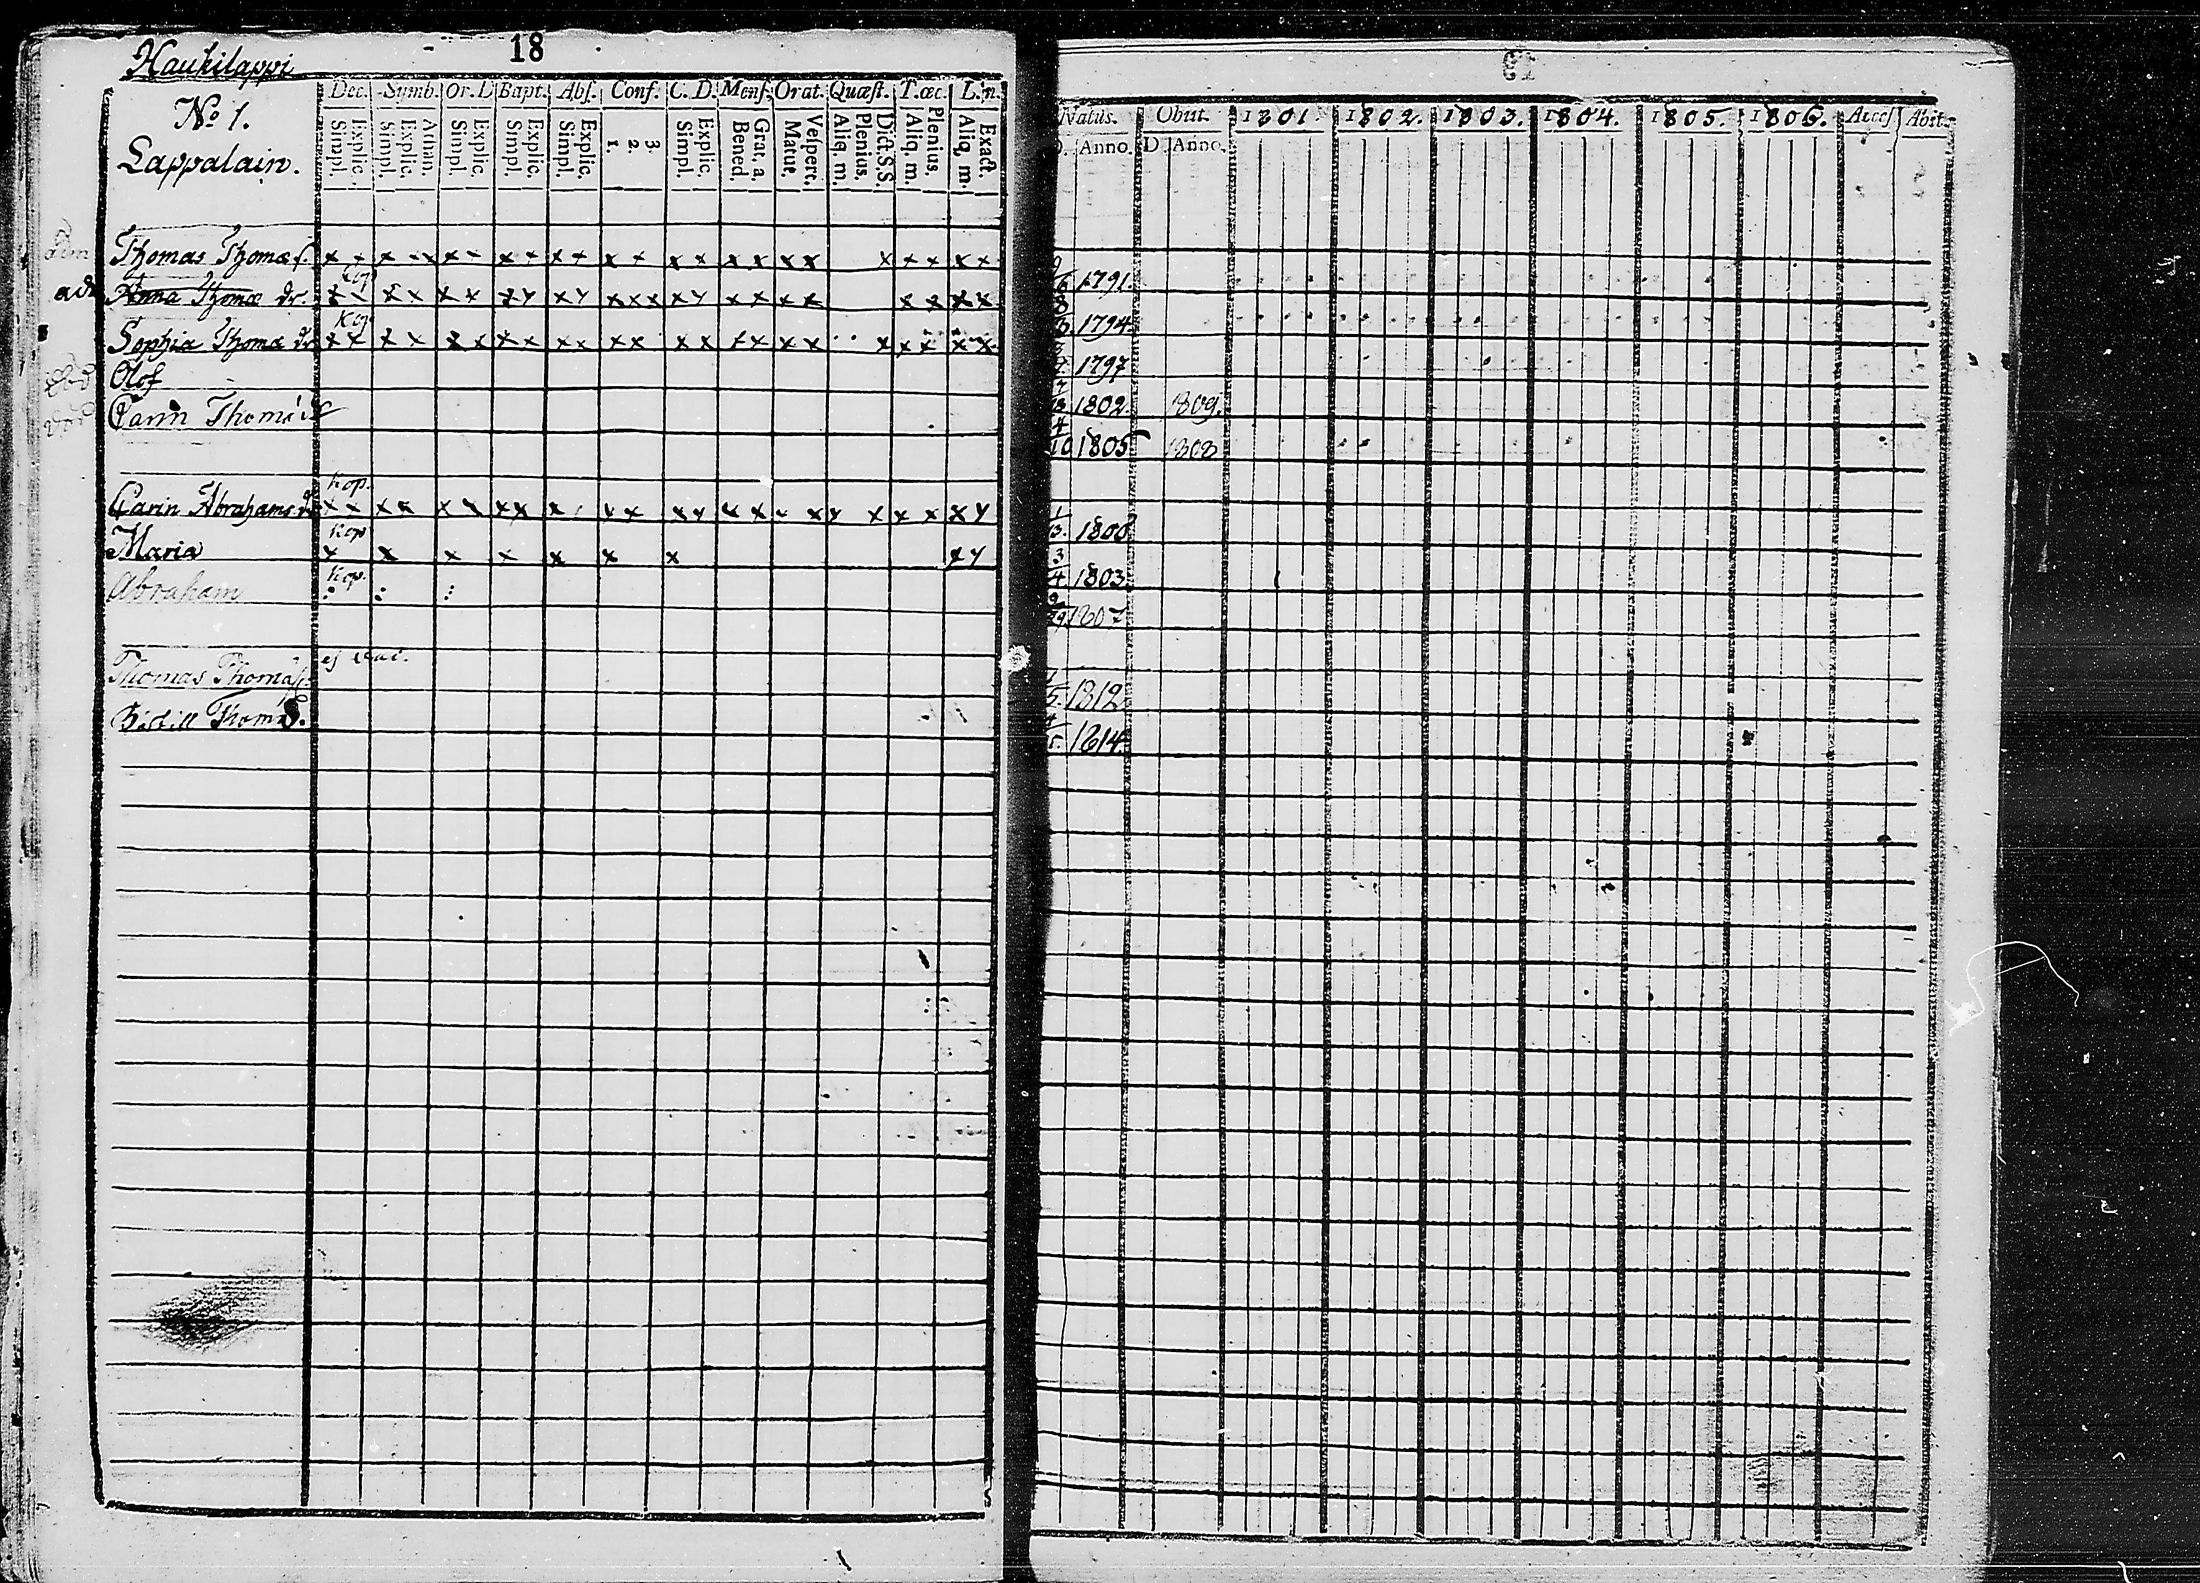 Haukilappi 18
Dec. Symb. Or. D Bapt. Abſ. Conf. C. D. Menſ. Orat. Quæſt. T. œc. L. n.
No 1.
Lappalain.
Explic. Simpl. Athan. Explic. Simpl. Explic. Simpl. Explic. Simpl. Explic. Simpl. 3. 2. 1. Explic. Simpl. Grat. a. Bened. Veſpert. Matut. Dict. S. S. Plenius. Aliq. m. Plenius. Aliq. m. Exact. Aliq. m.
Thomas Thomæ ſ.
Anna Thomæ dr.
Sophia Thomæ dr
Olof
Carin Thomæ
Kop.
Carin Abrahams dr
Kop
Maria
Kop.
Abraham
Thomas Thomæ
Thom
Natus. Obiit. 1801 1802. 1803. 1804. 1805. 1806. Acceſ Abit.
D. Anno. D. Anno.
1791.
1794
1797
1802 1809.
10 1805 1808
1800
3/4. 1803
1807
1812
4/5. 1814.